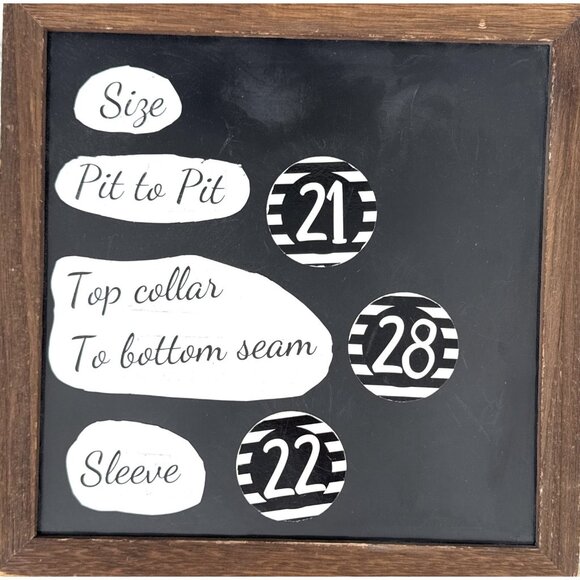 Size
Pit to Pit 21
Top collar
To bottom seam 28
Sleeve 22